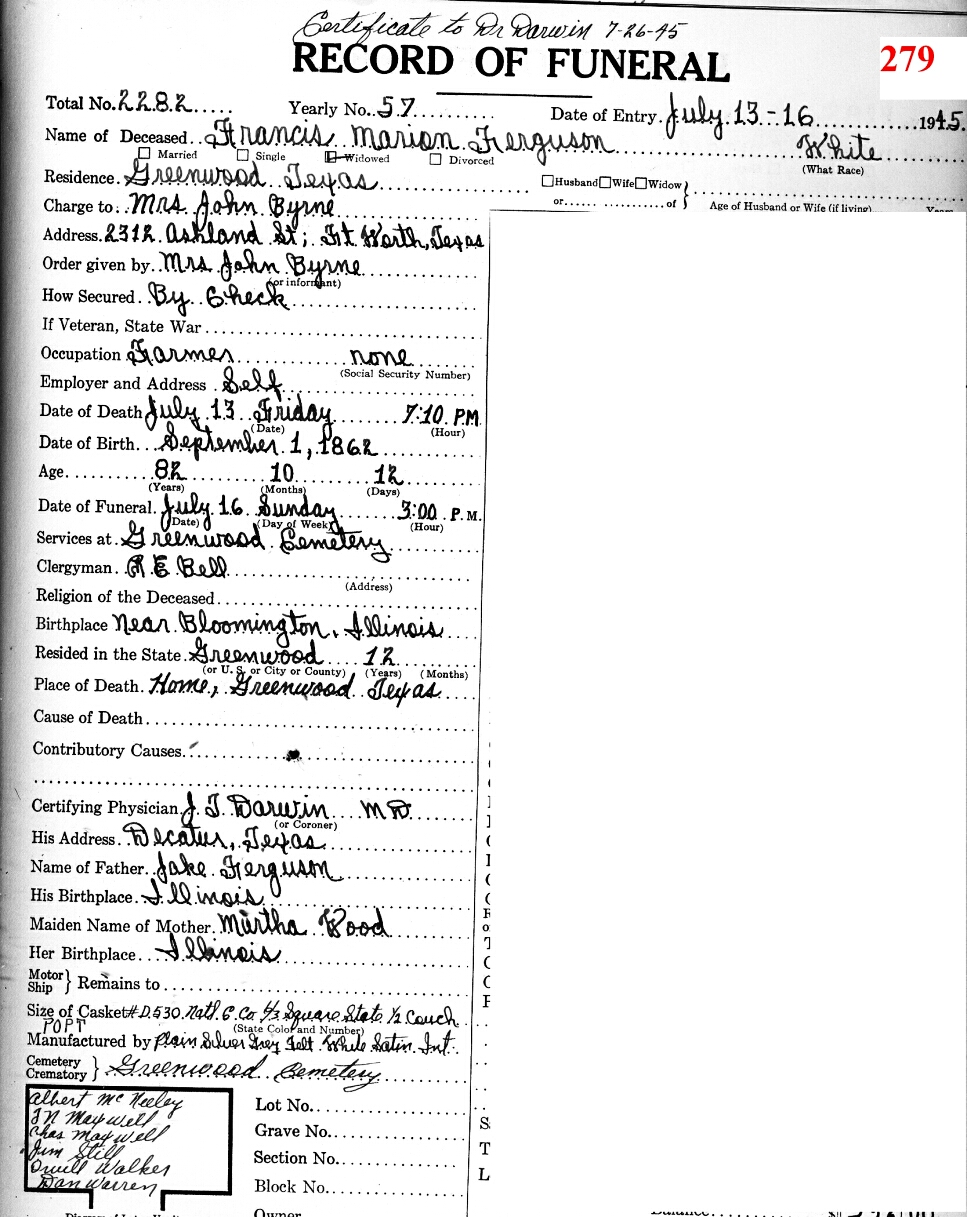 Certificate to Dr Darwin 7-26-45
RECORD OF FUNERAL
279
Total No. 2282 Yearly No. 57 Date of Entry July 13-16 1945
Name of Deceased Francis Marion Ferguson White
Married Single Widowed Divorced (What Race)
Residence Greenwood Texas Husband Wife Widow
or of Age of Husband or Wife (if living)
Charge to Mrs John Byrne
Address 2312 Ashland St; Ft Worth, Texas
Order given by Mrs John Byrne
(or informant)
How Secured By Check
If Veteran, State War
Occupation Farmer none
(Social Security Number)
Employer and Address Self
Date of Death July 13 Friday 7:10 P.M.
(Date) (Hour)
Date of Birth September 1, 1862
Age 82 10 12
(Years) (Months) (Days)
Date of Funeral July 16 Sunday 3:00 P.M.
(Date) (Day of Week) (Hour)
Services at Greenwood Cemetery
Clergyman R E Bell
(Address)
Religion of the Deceased
Birthplace Near Bloomington, Illinois
Resided in the State Greenwood 12
(or U. S. or City or County) (Years) (Months)
Place of Death Home, Greenwood Texas
Cause of Death
Contributory Causes
Certifying Physician J. T. Darwin MD
(or Coroner)
His Address Decatur, Texas
Name of Father Jake Ferguson
His Birthplace Illinois
Maiden Name of Mother Martha Wood
Her Birthplace Illinois
Motor
Ship } Remains to
Size of Casket #D.530 Natl. C. Co. 6/3 Square State 1/2 Couch
POPT (State Color and Number)
Manufactured by Plain Silver Grey Felt White Satin Int.
Cemetery
Crematory } Greenwood Cemetery
Albert McNeeley
J N Maxwell
Chas Maxwell
Jim Still
Orvill Walker
Dan Warren
Lot No.
Grave No.
Section No.
Block No.
Owner